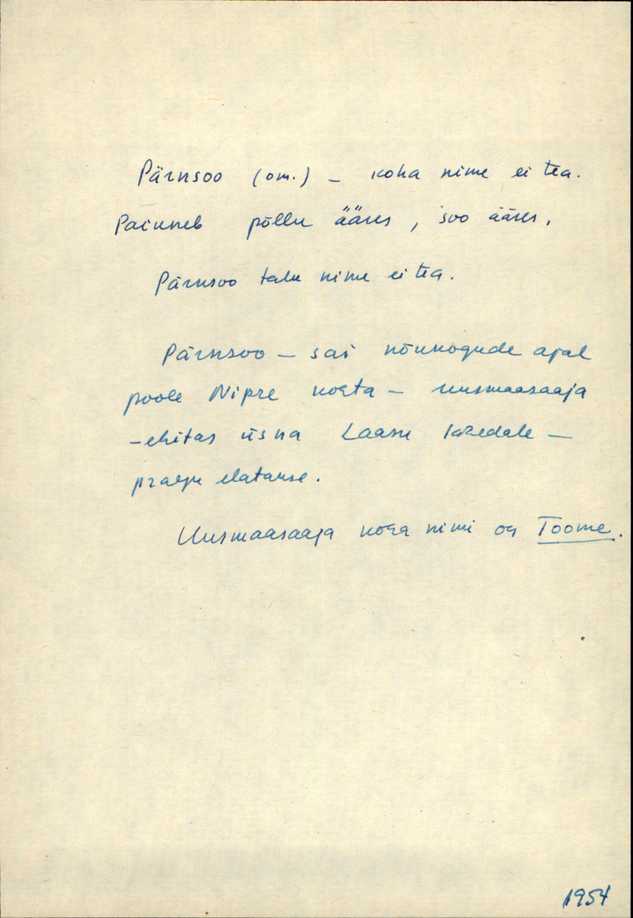 Pärnsoo (om.) – koha nime ei tea.
Paikneb põllu ääres, soo ääres.
Pärnsoo talu nime ei tea.
Pärnsoo – sai nõukogude ajal
poole Nipre kohta – uusmaasaaja
– ehitas üsna Laasu lähedale –
praegu elatakse.
Uusmaasaaja koha nimi on Toome.
1954